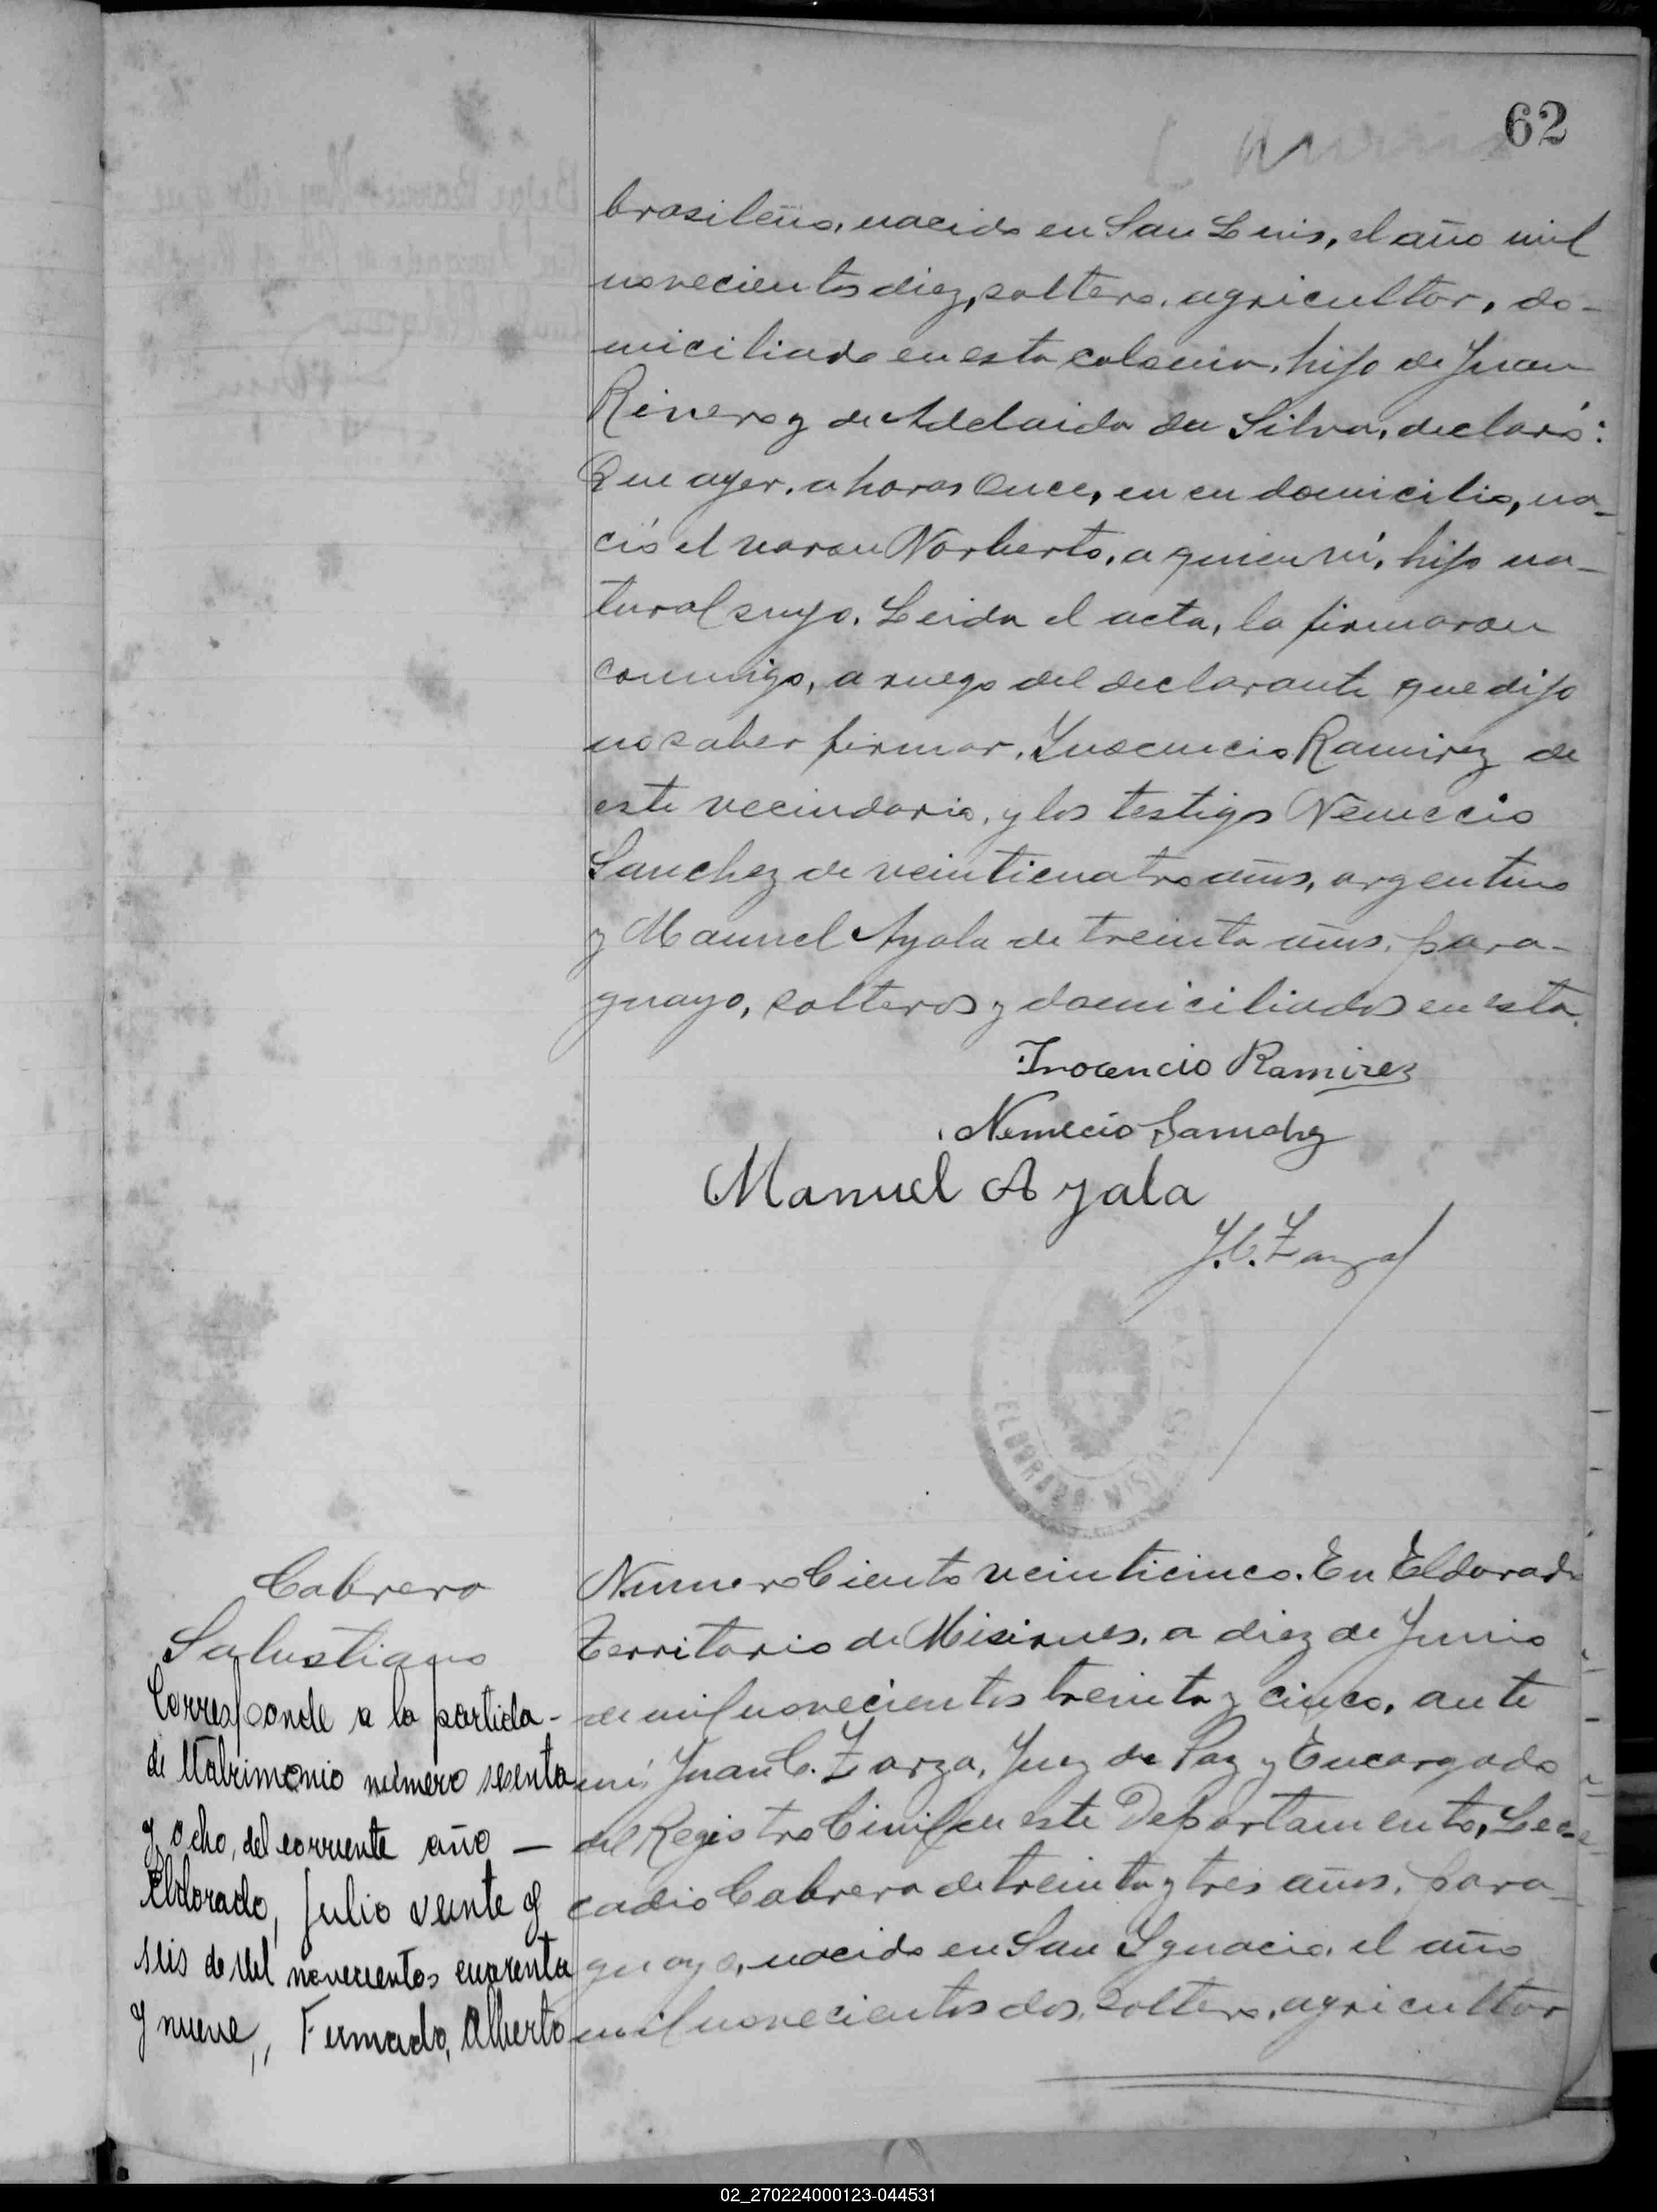 62
brasileño, nacido en San Luis, el año mil
novecientos diez, soltero, agricultor, do-
miciliado en esta colonia, hijo de Juan
Rivero y de Adelaida da Silva, declaró:
Que ayer, a horas once, en su domicilio, na-
ció el varon Norberto, a quien ví, hijo na-
tural suyo. Leida el acta, la firmaron
conmigo, a ruego del declarante que dijo
no saber firmar, Inocencio Ramirez de
este vecindario, y los testigos Nemecio
Sanchez de veinticuatro años, argentino
y Manuel Ayala de treinta años, para-
guayo, solteros y domiciliados en esta.
Inocencio Ramirez
Nemecio Sanchez
Manuel Ayala
J.C. Zarza
PAZ
ELDORADO MISIONES
Cabrera
Salustiano
Corresponde a la partida-
de Matrimonio número sesenta
y ocho, del corriente año —
Eldorado, Julio veinte y
seis de mil novecientos cuarenta
y nueve,, Firmado, Alberto
Numero Ciento veinticinco. En Eldorado
Territorio de Misiones, a diez de Junio
de mil novecientos treinta y cinco, ante
mi, Juan C. Zarza, Juez de Paz y Encargado
del Registro Civil en este Departamento, Leo-
cadio Cabrera de treinta y tres años, para-
guayo, nacido en San Ygnacio, el año
mil novecientos dos, soltero, agricultor
02_270224000123-044531